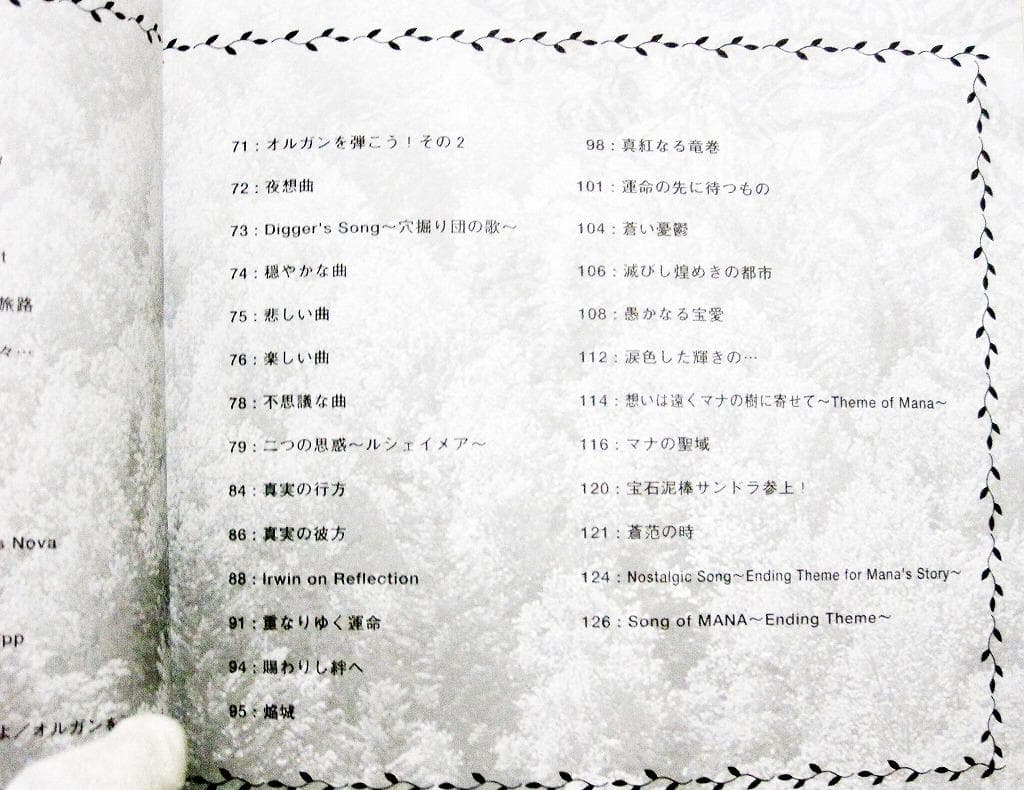 t
旅路
々…
s Nova
pp
よ／オルガンを
71：オルガンを弾こう！その2
72：夜想曲
73：Digger's Song～穴掘り団の歌～
74：穏やかな曲
75：悲しい曲
76：楽しい曲
78：不思議な曲
79：二つの思惑～ルシェイメア～
84：真実の行方
86：真実の彼方
88：Irwin on Reflection
91：重なりゆく運命
94：賜わりし絆へ
95：焔城
98：真紅なる竜巻
101：運命の先に待つもの
104：蒼い憂鬱
106：滅びし煌めきの都市
108：愚かなる宝愛
112：涙色した輝きの…
114：想いは遠くマナの樹に寄せて～Theme of Mana～
116：マナの聖域
120：宝石泥棒サンドラ参上！
121：蒼范の時
124：Nostalgic Song～Ending Theme for Mana's Story～
126：Song of MANA～Ending Theme～